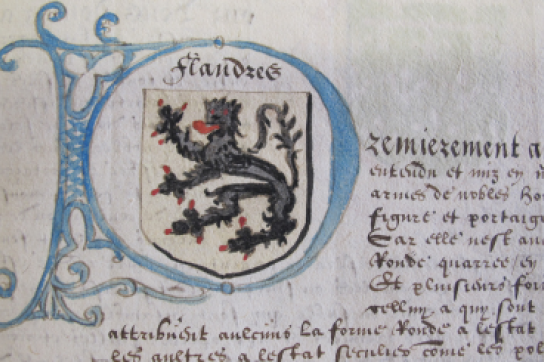 Flandres
Premierement a
entendu et mis en
armes de nobles ho
figure et portaig
Car elle nest au
Ronde quarree en
Et plusieurs for
a qui sont
attribuent aulcuns la forme Ronde a lestat
les aultres a lestat seculier come les pol